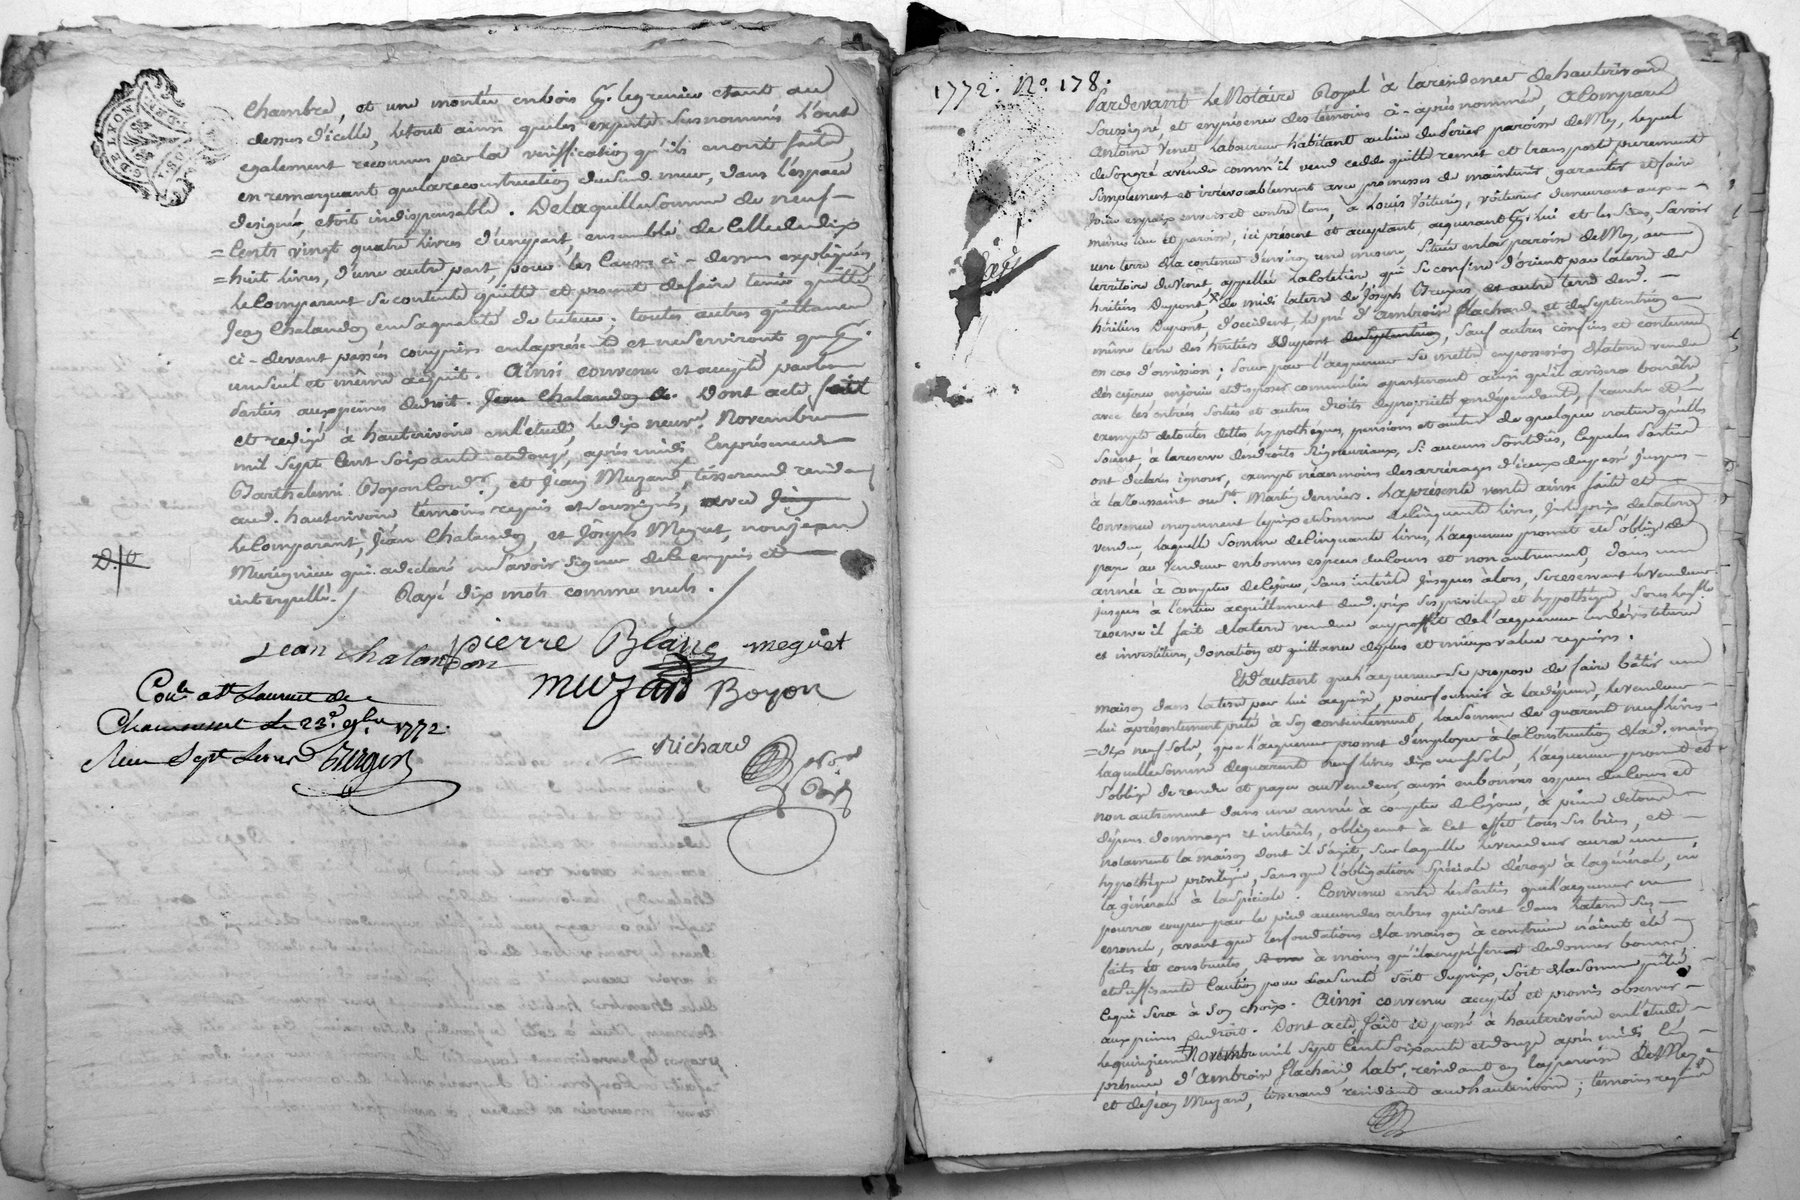 DE LYON
chambre, et une montée en bois &. le grenier etant au
dessus d'icelle, le tout ainsi que les experts susnommés l'ont
egalement reconnu par la vérification qu'ils en ont faite,
en remarquant que la reconstruction dudud. mur, dans l'espace
designé, etoit indispensable. De laquelle somme de neuf-
=cents vingt quatre livres d'une part, ensemble de celle de dix
=huit livres, d'une autre part, pour les causes ci-dessus expliquées
le comparant se contente quitte et promet de faire tenir quitte
Jean Chalandon en sa qualité de tuteur; toutes autres quittances
ci-devant passés comprises en la présente et ne serviront que &.
un seul et même acquit. Ainsi convenu et accepté par les
Parties aux peines de droit. Jean Chalandon a. Dont acte fait
et redigé à hauterivoire en l'étude, le dix neuf. Novembre
mil sept cent soixante et douze, après midi. En présence de
Barthelemi Boyon Cord.r, et Jean Muzard, tisserand residans
aud. hauterivoire témoins requis et soussignés, avec Jean
le comparant, Jean Chalandon, et Joseph Meguet, non jean
qui a declaré ne savoir signer de ce enquis et
interpellé./. Rayé dix mots comme nuls./
Jean Chalandon pierre Blanc meguet
muzard Boyon
Con.le a St Laurent de
Chamousset le 23.e 9bre 1772.
Reçu Sept livres
Richard
1772. N.o 178.
Pardevant le Notaire Royal à la residence de hauterivoire
soussigné, et en présence des témoins ci-après nommés, a comparu
Antoine Venet laboureur habitant au lieu du paroisse de Mey, lequel
de son gré a vendu comm'il vend cedde quitte remet et transporte purement
simplement et irrévocablement avec promesses de maintenir garantir et faire
jouir en paix envers et contre tous, à Louis Voiturin, voiturier demeurant aux
mêmes lieu et paroisse, ici présent et acceptant, acquerant &. lui et les siens, Savoir
une terre de la contenue d'environ une mesure, située en la paroisse de Mey, au
territoire du Venet, appellée la Coletière, qui se confine d'orient par la terre des
héritiers Dupont, de midi la terre de Joseph et autre terre des d.
héritiers Dupont, d'occident, le pré d'Ambroise flachard, et de septentrion
même terre des héritiers Dupont de septentrion, sauf autres confins et contenue
en cas d'omission; Pour par l'acquereur se mettre en possession de la terre vendue
dès ce jour, en jouir et disposer comme lui apartenant ainsi qu'il avisera bon être
avec les entrées sorties et autres droits de propriété en dépendants, franche et
exempte de toutes dettes hypotheques, pensions et autres de quelque nature qu'elles
soient, à la reserve des droits seigneuriaux, si aucuns sont dûs, lesquels les Parties
ont declaré ignorer, exempte néanmoins des arrérages d'iceux du passé jusques
à la Toussaint ou St. Martin derniers. La présente vente ainsi faite et
convenue moyennant le prix et somme de cinquante livres, juste prix de la terre
vendue, laquelle somme de cinquante livres, l'acquereur promet et s'oblige de
payer au vendeur en bonnes especes du cours et non autrement, dans une
année à compter de ce jour, sans intérêt jusques alors, se reservant le Vendeur
jusques à l'entier acquittement dud. prix ses privilege et hypothèque, sous laq.lle
reserve il fait de la terre vendue au profit de l'acquereur
et investiture, donation et quittance de plus et mieux value requises.
Et d'autant que l'acquereur se propose de faire bâtir une
maison dans la terre par lui acquise, pour fournir à la dépense, le vendeur
lui a présentement prêté à son contentement, la somme de quarante neuf livres
=dix neuf sols, que l'acquereur promet d'employer à la construction de lad. maison
laquelle somme de quarante neuf livres dix neuf sols, l'acquereur promet et
s'oblige de rendre et payer au Vendeur, aussi en bonnes especes du cours et
non autrement dans une année à compter de ce jour, à peine de tous
dépens dommages et intérêts, obligeant à cet effet tous ses biens, et
notamment la maison dont il s'agit, sur laquelle le vendeur aura une
hypothèque privilegié, sans que l'obligation spéciale déroge à la générale, ni
la générale à la spéciale. Convenu entre les Parties que l'acquereur ne
pourra couper par le pied aucun des arbres qui sont dans la terre
avant que les fondations de la maison à construire n'aient été
faits et construits, à moins qu'il de donner bonne
et suffisante caution pour la sureté soit du prix, soit de la somme prêtée,
ce qui sera à son choix. Ainsi convenu accepté et promis observer
aux peines de droit. Dont acte, fait et passé à hauterivoire en l'étude
le quinzieme Novembre mil sept cent soixante et douze après midi. En
présence d'Ambroise flachard, lab.r, residant en la paroisse de Mey
et de Jean Muzard, tisserand residant aud. hauterivoire; témoins requis